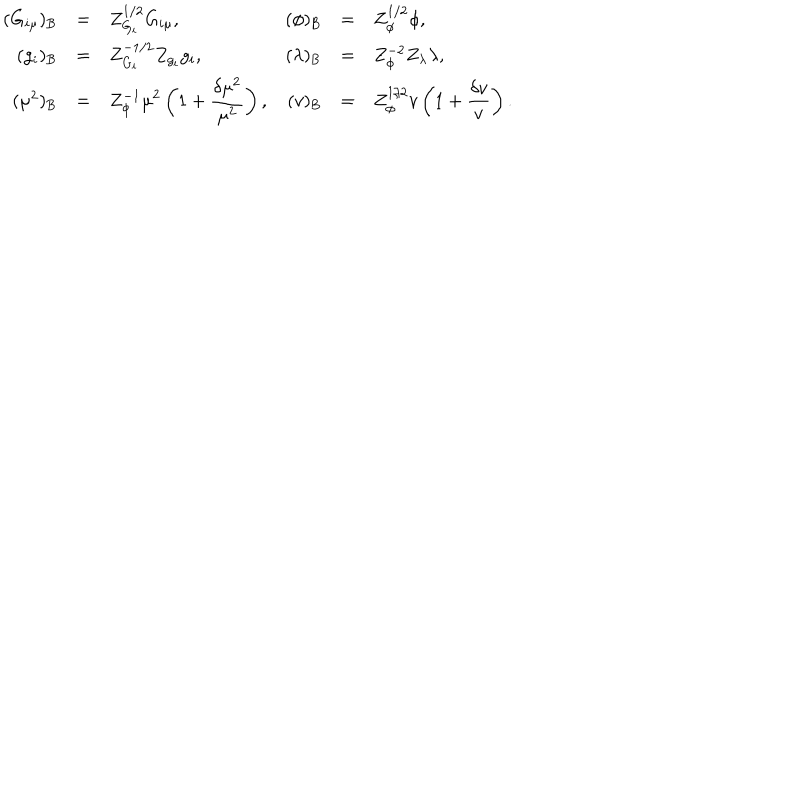 (G_{iμ})_B = Z_{G_i}^{1/2} G_{iμ}, (ϕ)_B = Z_ϕ^{1/2} ϕ,
(g_i)_B = Z_{G_i}^{-1/2} Z_{g_i} g_i, (λ)_B = Z_ϕ^{-2} Z_λ λ,
(μ^2)_B = Z_ϕ^{-1} μ^2 (1 + \frac{δμ^2}{μ^2}), (v)_B = Z_ϕ^{1/2} v (1 + \frac{δv}{v}).